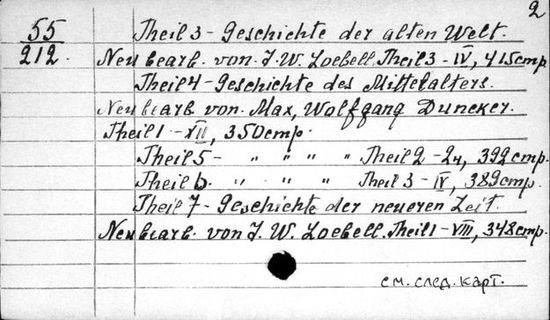 2
55 Theil 3 - Geschichte der alten Welt.
212. Neu bearb. von J. W. Loebell. Theil 3 - IV, 415 стр
Theil 4 - Geschichte des Mittelalters.
Neu bearb. von. Max, Wolfgang Duncker.
Theil 1 - XII, 350 стр.
Theil 5 - " " " " Theil 2 - 2н, 392 стр.
Theil 6. " " " " Theil 3 - IV, 389 стр.
Theil 7 - Geschichte der neueren Zeit.
Neu bearb. von J. W. Loebell. Theil 1 - VIII, 348 стр.
см. след. карт.